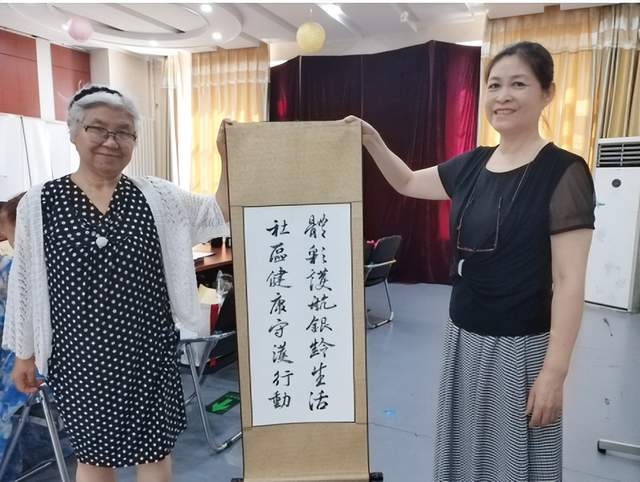 體彩護航銀齡生活
社區健康守護行動